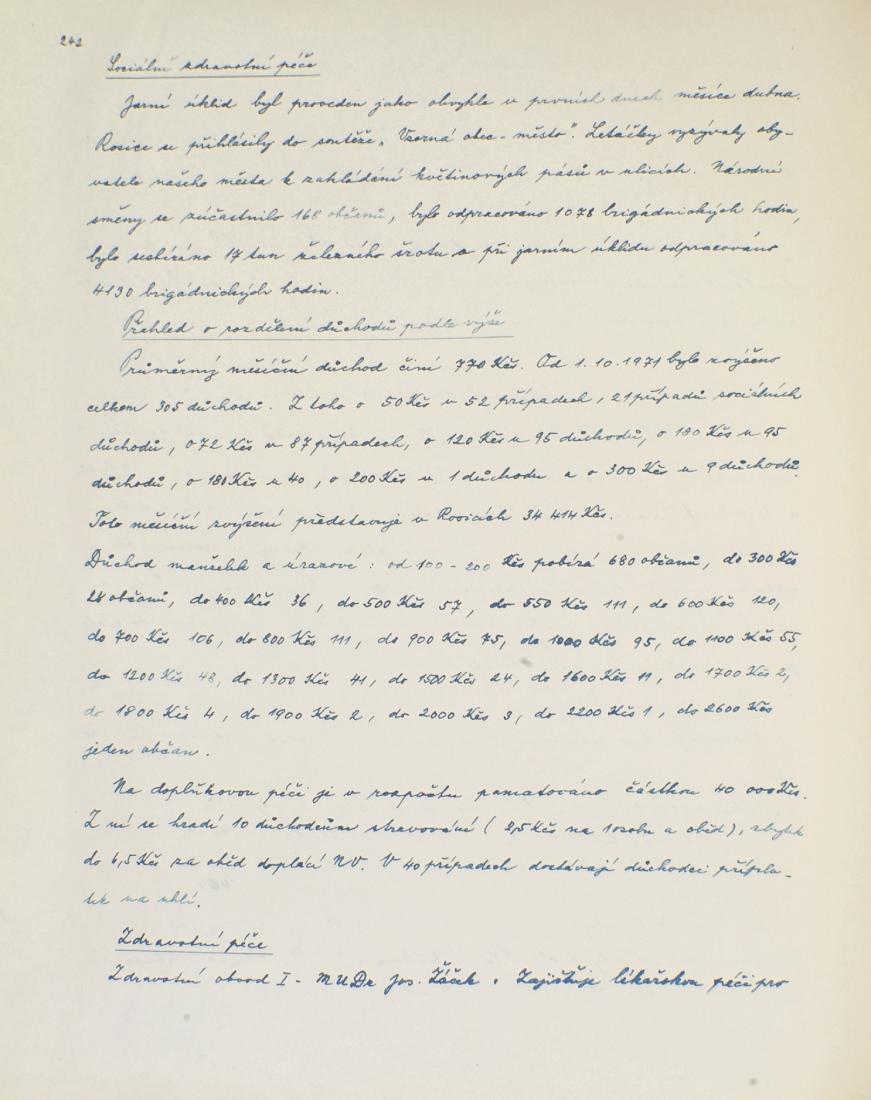 242
Sociální zdravotní péče
Jarní úklid byl proveden jako obvykle v prvních dnech měsíce dubna.
Rosice se přihlásily do soutěže „Vzorná obec - město". Letáčky vyzývaly oby-
vatele našeho města k zakládání květinových pásů v ulicích. Národní
směny se zúčastnilo 168 občanů, bylo odpracováno 1078 brigádnických hodin,
bylo sesbíráno 17 tun železného šrotu a při jarním úklidu odpracováno
4130 brigádnických hodin.
Přehled o rozdělení důchodů podle výše
Průměrný měsíční důchod činí 770 Kčs. Od 1.10.1971 bylo zvýšeno
celkem 305 důchodů. Z toho o 50 Kčs v 52 případech, 21 případů sociálních
důchodů, o 72 Kčs v 87 případech, o 120 Kčs u 95 důchodů, o 180 Kčs u 95
důchodů, o 180 Kčs u 40, o 200 Kčs u 1 důchodu a o 300 Kčs u 9 důchodů.
Toto měsíční zvýšení představuje v Rosicích 34 414 Kčs.
Důchod manželek a úrazové : od 100 - 200 Kčs pobírá 680 občanů, do 300 Kčs
28 občanů, do 400 Kčs 36, do 500 Kčs 57, do 550 Kčs 111, do 600 Kčs 120,
do 700 Kčs 106, do 800 Kčs 111, do 900 Kčs 75, do 1000 Kčs 95, do 1100 Kčs 55,
do 1200 Kčs 48, do 1300 Kčs 41, do 1500 Kčs 24, do 1600 Kčs 11, do 1700 Kčs 2,
do 1800 Kčs 4, do 1900 Kčs 2, do 2000 Kčs 3, do 2200 Kčs 1, do 2600 Kčs
jeden občan.
Na doplňkovou péči je v rozpočtu pamatováno částkou 40 000 Kčs.
Z ní se hradí 10 důchodcům stravování ( 3,5 Kčs na 1 osobu a oběd), zbytek
do 6,5 Kčs za oběd doplácí NV. V 40 případech dostávají důchodci přípla-
tek na uhlí.
Zdravotní péče
Zdravotní obvod I - MUDr Jos. Žáček. Zajišťuje lékařskou péči pro